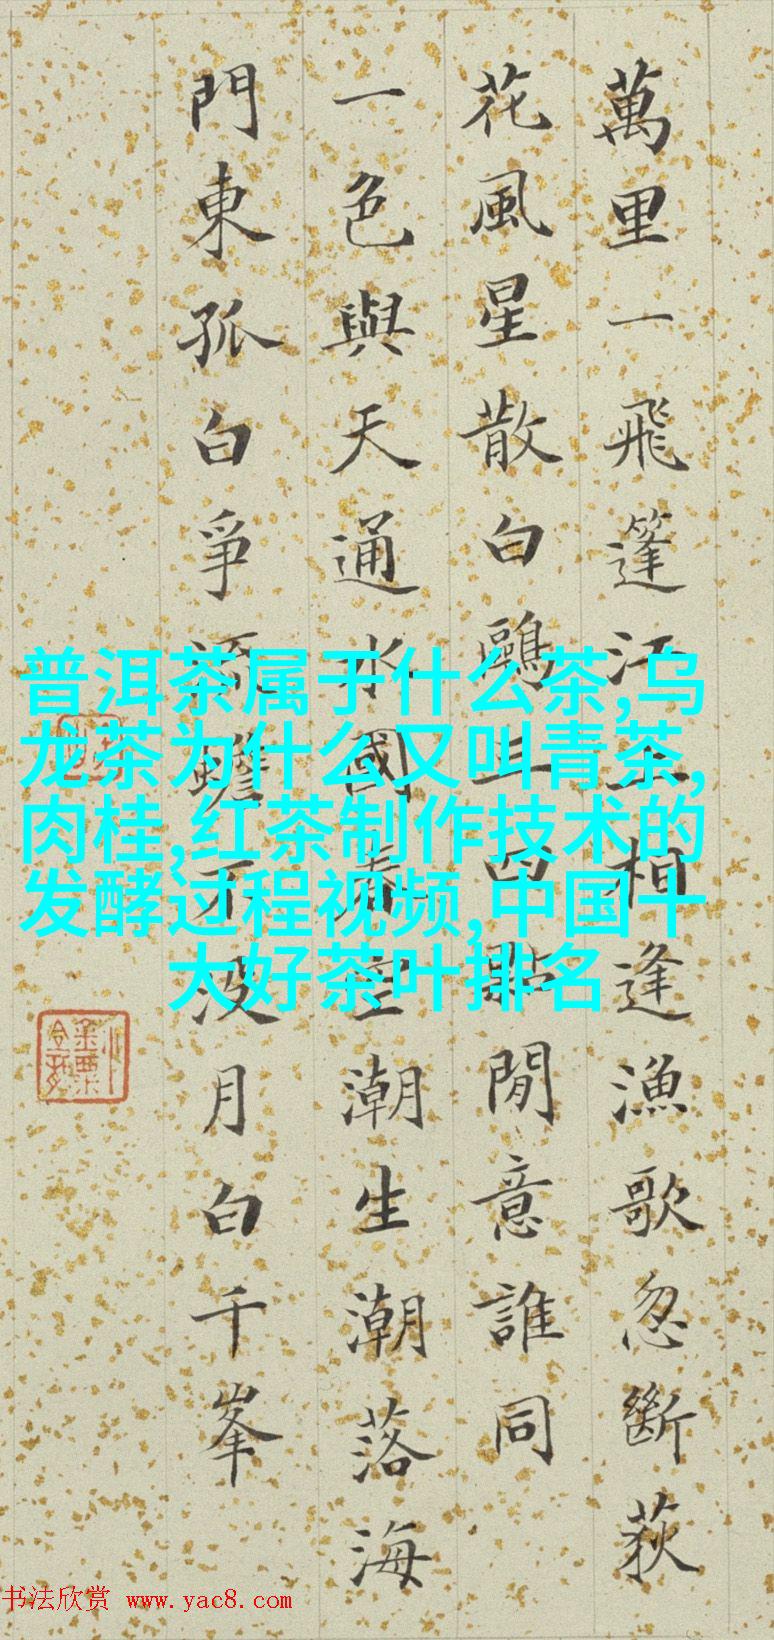 萬里一飛篷江上相逢漁歌忽斷荻
花風星散白鷗三四點閒意誰同
一色與天通水國春空潮生潮落海
門東孤白爭流蟾不没月白千峯
普洱茶属于什么茶,乌
龙茶为什么又叫青茶,
肉桂,红茶制作技术的
发酵过程视频,中国十
大好茶叶排名
书法欣赏 www.yac8.com